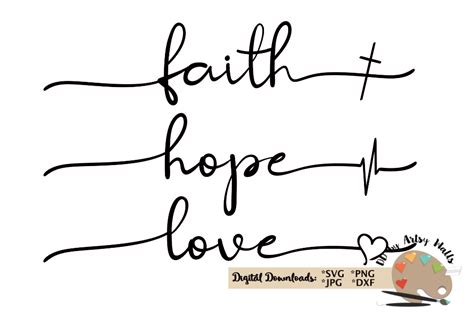 faith
hope
love
Digital Downloads: *SVG *PNG
*JPG *DXF
by Artsy Walls